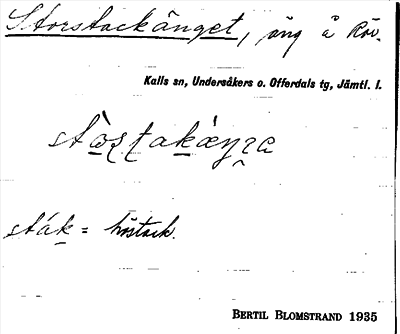 Storstackänget, äng å Röv.
Kalls sn, Undersåkers o. Offerdals tg, Jämtl. l.
sták = höstack.
BERTIL BLOMSTRAND 1935